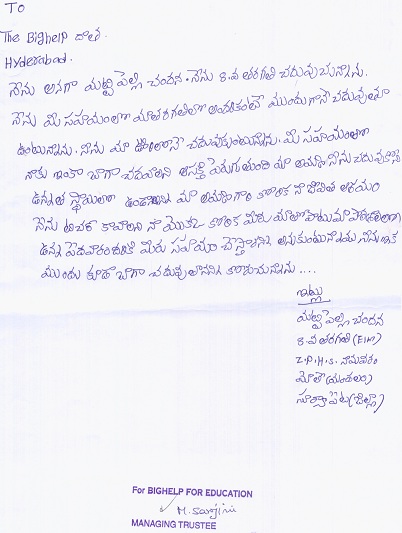 To
The Bighelp దాత.
Hyderabad.
నేను అనగా యట్టి పెల్లి చందన. నేను 8.వ తరగతి చదువుచున్నాను.
నేను మీ సహాయంతో మాతరగతిలో అందరికంటే ముందుగానే చదువుతూ
ఉంటున్నాను. నేను మా ఊరిలోనే చదువుకుంటున్నాను. మీ సహాయంతో
నాకు ఇంకా బాగా చదవాలని ఆసక్తి పెరుగుతుంది మా అమ్మ నేను చదువుకొని
ఉన్నత స్థాయిలో ఉండాలని మా అమ్మగారి కోరిక నా జీవిత ఆశయం
నేను టీచర్ కావాలని నా మొదటి కోరిక మీరు మాతోపాటు మా పాఠశాలలో
ఉన్న పేదవారందరికి మీరు సహాయం చేస్తారని అనుకుంటున్నాను. నేను ఇక
ముందు కూడా బాగా చదువుతానని కోరుచున్నాను ....
ఇట్లు
యట్టి పెల్లి చందన
8.వ తరగతి (E/M)
Z.P.H.S. నామవరం
మోతె (మండలం)
సూర్యాపేట (జిల్లా)
For BIGHELP FOR EDUCATION
MANAGING TRUSTEE